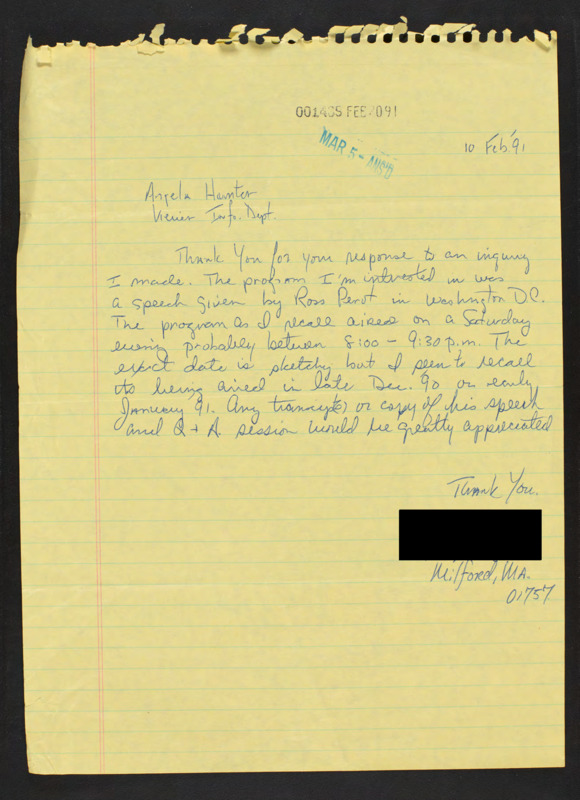 001435 FEB 2091
MAR 5 - ANS'D
10 Feb '91
Angela Hunter
Viewer Info. Dept.
Thank You for your response to an inquiry
I made. The program I'm interested in was
a speech given by Ross Perot in Washington DC.
The program as I recall aired on a Saturday
evening probably between 8:00 - 9:30 p.m. The
exact date is sketchy but I seem to recall
its being aired in late Dec. 90 or early
January 91. Any transcript(s) or copy of his speech
and Q + A session would be greatly appreciated
Thank You.
Milford, MA.
01757